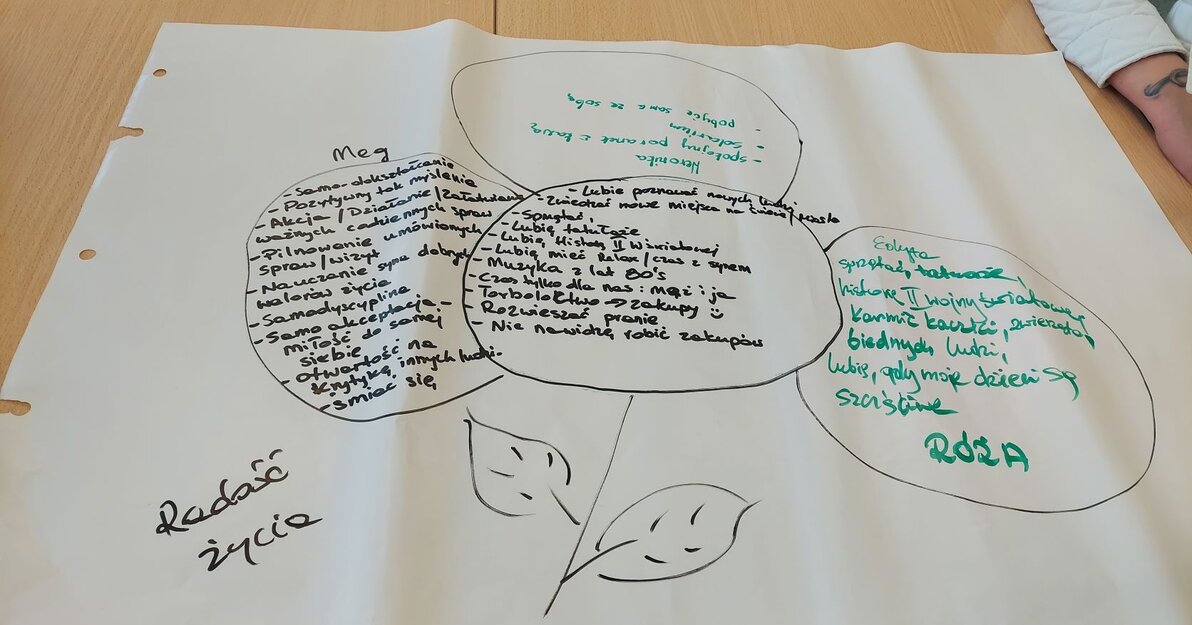 Weronika
- spokojny poranek z kawą
- solarium
- pobycie sama ze sobą
Meg
- Samo-dokształcanie
- Pozytywny tok myślenia
- Akcja / Działanie / Załatwianie
ważnych codziennych spraw
- Pilnowanie umówionych
spraw / wizyt
- Nauczanie syna dobrych
walorów życia
- Samodyscyplina
- Samo akceptacja -
miłość do samej
siebie
- otwartość na
krytykę innych ludzi.
- śmiać się
- Lubie poznawać nowych ludzi
- Zwiedzać nowe miejsca na świecie / miasta
- Sprzątać,
- Lubię tatuaże
- Lubię History II W światowej
- Lubię mieć Relax / czas z synem
- Muzyka z lat 80's
- Czas tylko dla nas: mąż i ja
- Torboloctwo → zakupy
- Rozwieszać pranie
- Nie nawidzę robić zakupów
Edyta
sprzątać,
historię II wojny światowej
karmić kaczki, zwierzęta,
biednych ludzi,
lubię, gdy moje dzieci są
szczęśliwe
RÓŻA
Radość
życia